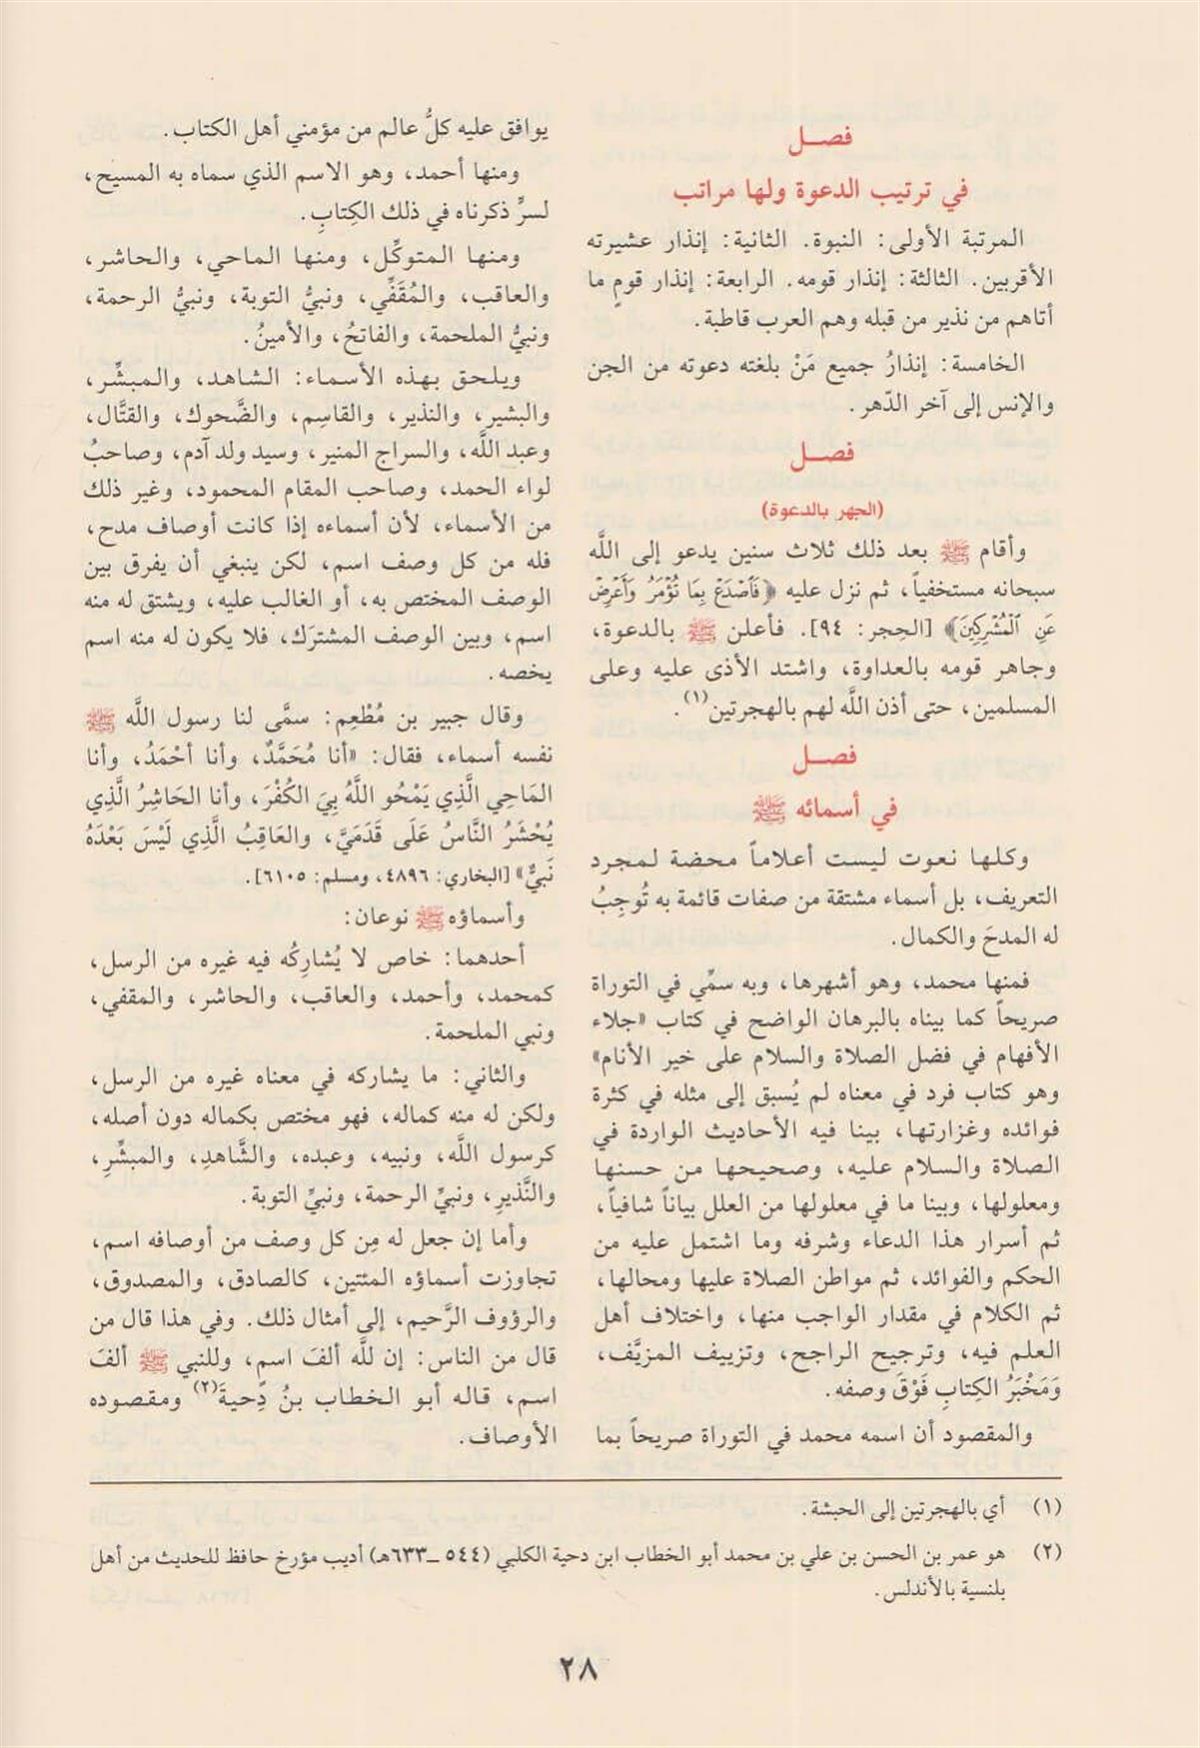 فصــل
في ترتيب الدعوة ولها مراتب
المرتبة الأولى: النبوة. الثانية: إنذار عشيرته
الأقربين. الثالثة: إنذار قومه. الرابعة: إنذار قومٍ ما
أتاهم من نذير من قبله وهم العرب قاطبة.
الخامسة: إنذارُ جميع مَنْ بلغته دعوته من الجن
والإنس إلى آخر الدّهر.
فصــل
(الجهر بالدعوة)
وأقام ﷺ بعد ذلك ثلاث سنين يدعو إلى اللَّه
سبحانه مستخفياً، ثم نزل عليه ﴿فَٱصۡدَعۡ بِمَا تُؤۡمَرُ وَأَعۡرِضۡ
عَنِ ٱلۡمُشۡرِكِينَ﴾ [الحِجر: ٩٤]. فأعلن ﷺ بالدعوة،
وجاهر قومه بالعداوة، واشتد الأذى عليه وعلى
المسلمين، حتى أذن اللَّه لهم بالهجرتين(١).
فصــل
في أسمائه ﷺ
وكلها نعوت ليست أعلاماً محضة لمجرد
التعريف، بل أسماء مشتقة من صفات قائمة به تُوجِبُ
له المدحَ والكمال.
فمنها محمد، وهو أشهرها، وبه سمِّي في التوراة
صريحاً كما بيناه بالبرهان الواضح في كتاب «جلاء
الأفهام في فضل الصلاة والسلام على خير الأنام»
وهو كتاب فرد في معناه لم يُسبق إلى مثله في كثرة
فوائده وغزارتها، بينا فيه الأحاديث الواردة في
الصلاة والسلام عليه، وصحيحها من حسنها
ومعلولها، وبينا ما في معلولها من العلل بياناً شافياً،
ثم أسرار هذا الدعاء وشرفه وما اشتمل عليه من
الحكم والفوائد، ثم مواطن الصلاة عليها ومحالها،
ثم الكلام في مقدار الواجب منها، واختلاف أهل
العلم فيه، وترجيح الراجح، وتزييف المزيَّف،
وَمَخْبَرُ الكِتابِ فَوْقَ وصفه.
والمقصود أن اسمه محمد في التوراة صريحاً بما
يوافق عليه كلُّ عالم من مؤمني أهل الكتاب.
ومنها أحمد، وهو الاسم الذي سماه به المسيح،
لسرٍّ ذكرناه في ذلك الكِتابِ.
ومنها المتوكِّل، ومنها الماحي، والحاشر،
والعاقب، والمُقَفِّي، ونبيُّ التوبة، ونبيُّ الرحمة،
ونبيُّ الملحمة، والفاتحُ، والأمينُ.
ويلحق بهذه الأسماء: الشاهد، والمبشِّر،
والبشير، والنذير، والقاسِم، والضَّحوك، والقتَّال،
وعبد اللَّه، والسراج المنير، وسيد ولد آدم، وصاحبُ
لواء الحمد، وصاحب المقام المحمود، وغير ذلك
من الأسماء، لأن أسماءه إذا كانت أوصاف مدح،
فله من كل وصف اسم، لكن ينبغي أن يفرق بين
الوصف المختص به، أو الغالب عليه، ويشتق له منه
اسم، وبين الوصف المشترَك، فلا يكون له منه اسم
يخصه.
وقال جبير بن مُطْعِم: سمَّى لنا رسول اللَّه ﷺ
نفسه أسماء، فقال: «أنا مُحَمَّدٌ، وأنا أحْمَدُ، وأنا
المَاحِي الَّذِي يَمْحُو اللَّهُ بِيَ الكُفْرَ، وأنا الحَاشِرُ الَّذِي
يُحْشَرُ النَّاسُ عَلَى قَدَمَيَّ، والعَاقِبُ الَّذِي لَيْسَ بَعْدَهُ
نَبيٌّ» [البخاري: ٤٨٩٦، ومسلم: ٦١٠٥].
وأسماؤه ﷺ نوعان:
أحدهما: خاص لا يُشارِكُه فيه غيره من الرسل،
كمحمد، وأحمد، والعاقب، والحاشر، والمقفي،
ونبي الملحمة.
والثاني: ما يشاركه في معناه غيره من الرسل،
ولكن له منه كماله، فهو مختص بكماله دون أصله،
كرسول اللَّه، ونبيه، وعبده، والشَّاهدِ، والمبشِّرِ،
والنَّذيرِ، ونبيِّ الرحمة، ونبيِّ التوبة.
وأما إن جعل له مِن كل وصف من أوصافه اسم،
تجاوزت أسماؤه المئتين، كالصادق، والمصدوق،
والرؤوف الرَّحيم، إلى أمثال ذلك. وفي هذا قال من
قال من الناس: إن للَّه ألفَ اسمٍ، وللنبي ﷺ ألفَ
اسم، قاله أبو الخطاب بنُ دِّحيةَ(٢) ومقصوده
الأوصاف.
(١) أي بالهجرتين إلى الحبشة.
(٢) هو عمر بن الحسن بن علي بن محمد أبو الخطاب ابن دحية الكلبي (٥٤٤ ــ ٦٣٣هـ) أديب مؤرخ حافظ للحديث من أهل
بلنسية بالأندلس.
٢٨